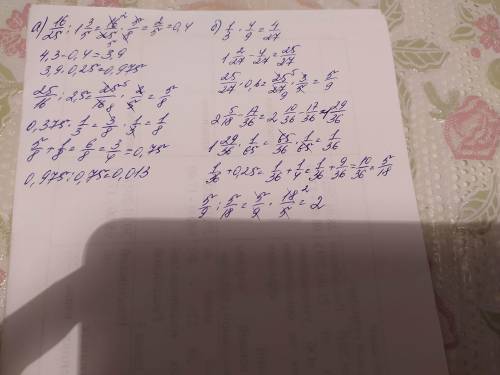 а) 16/25 : 1 3/5 = 16/25 · 5/8 = 2/5 = 0,4
4,3 - 0,4 = 3,9
3,9 · 0,25 = 0,975
25/16 : 2,5 = 25/16 · 2/5 = 5/8
0,375 · 1/3 = 3/8 · 1/3 = 1/8
5/8 + 1/8 = 6/8 = 3/4 = 0,75
0,975 : 0,75 = 0,013
б) 1/3 · 4/9 = 4/27
1 2/27 - 4/27 = 25/27
25/27 · 0,6 = 25/27 · 3/5 = 5/9
2 5/18 - 17/36 = 2 10/36 - 17/36 = 1 29/36
1 29/36 · 1/65 = 65/36 · 1/65 = 1/36
1/36 + 0,25 = 1/36 + 1/4 = 1/36 + 9/36 = 10/36 = 5/18
5/9 : 5/18 = 5/9 · 18/5 = 2